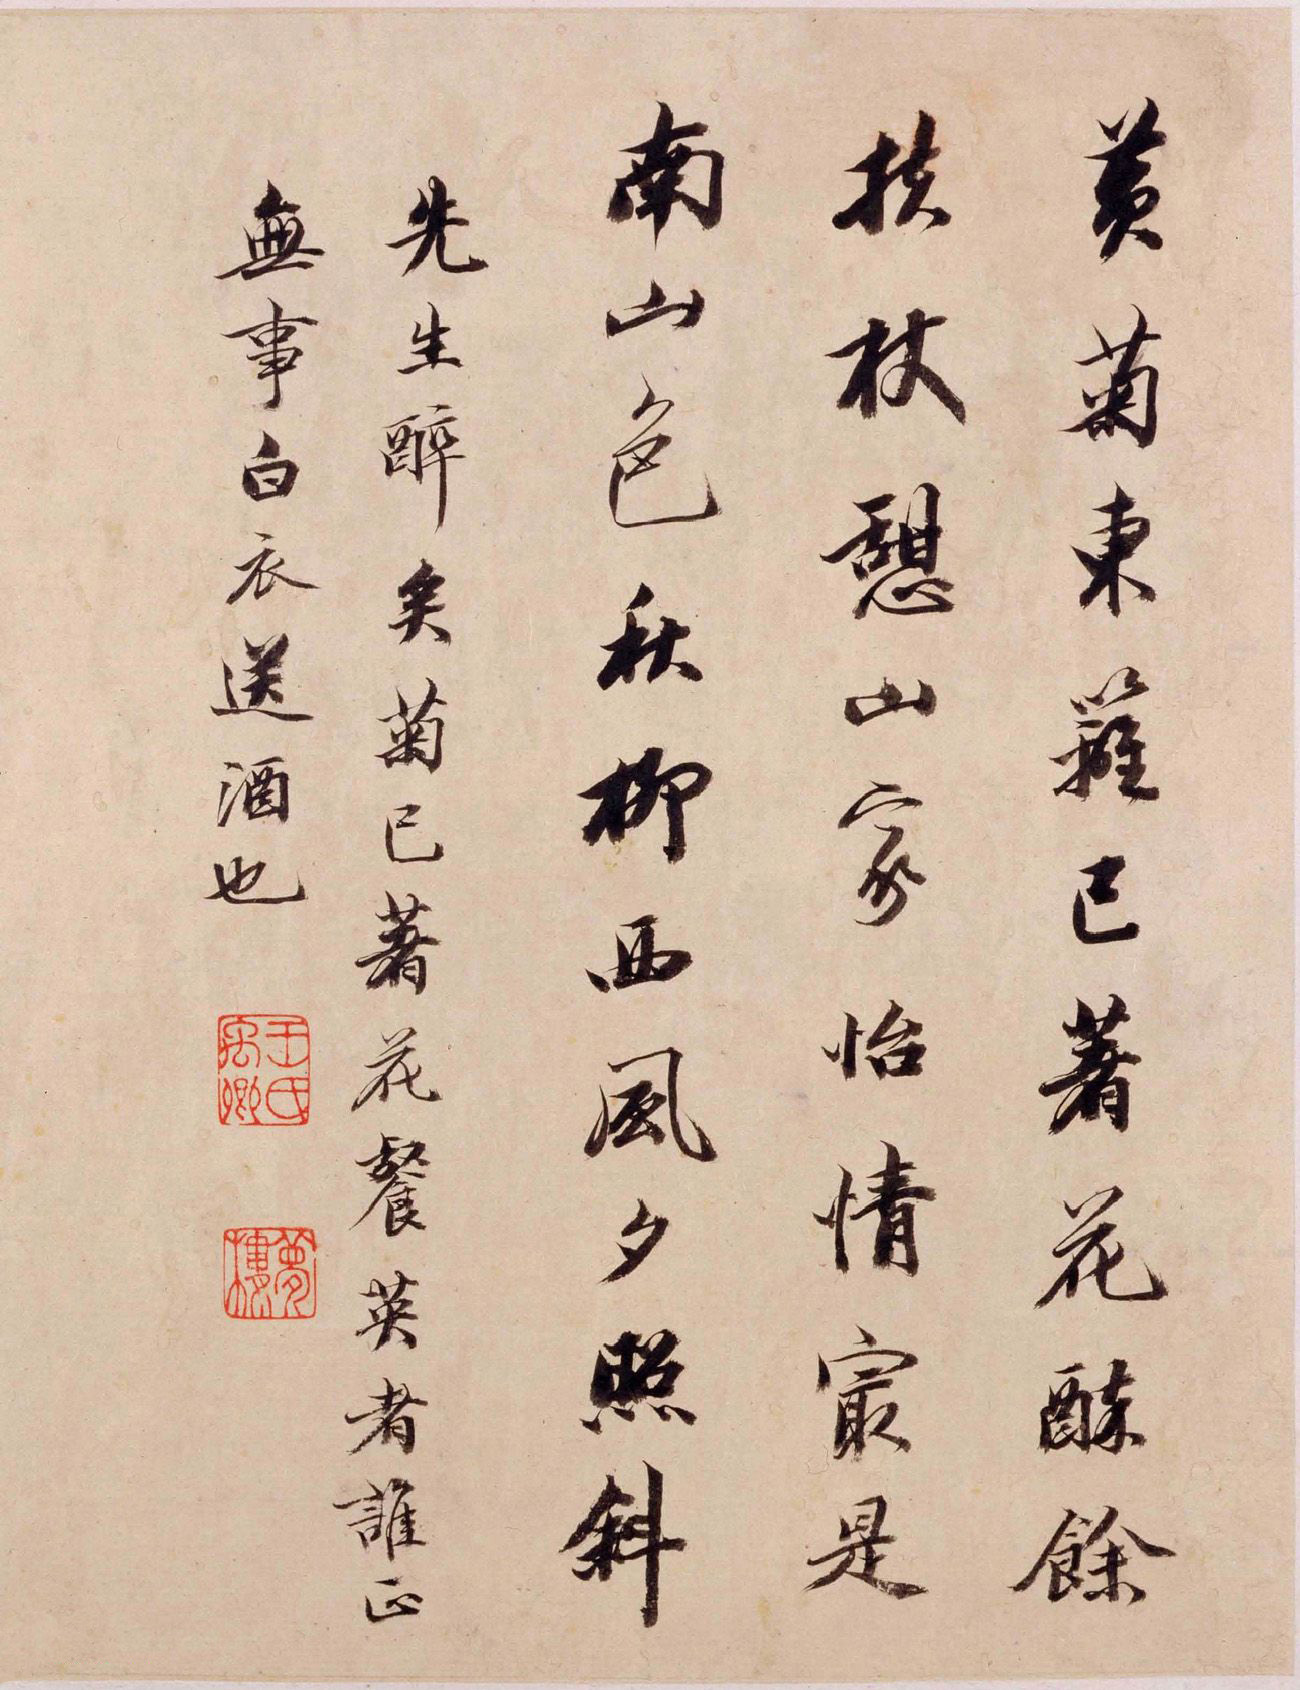 黃菊東籬已著花酥餘
扶杖憩山家怡情寂是
南山色秋柳西風夕照斜
先生醉矣菊已著花餐英者誰正
無事白衣送酒也
王氏禹卿
夢樓